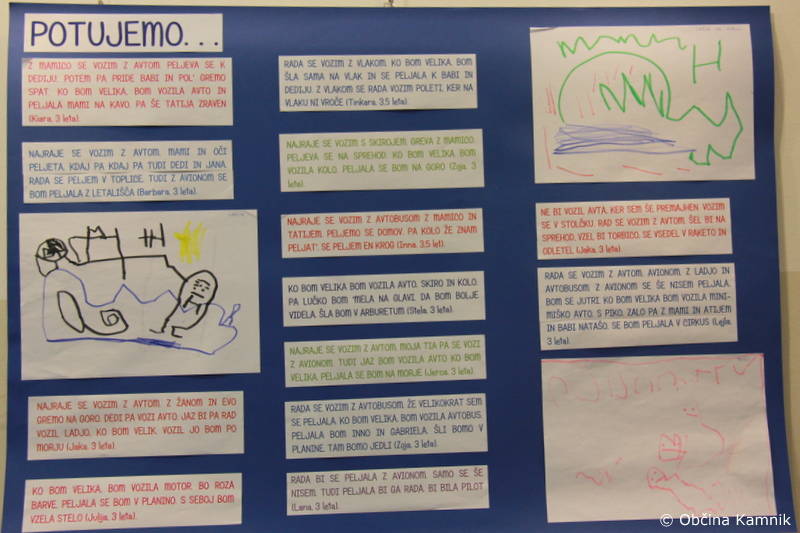 POTUJEMO...
Z MAMICO SE VOZIM Z AVTOM. PELJEVA SE K
DEDIJU, POTEM PA PRIDE BABI IN POL' GREMO
SPAT. KO BOM VELIKA, BOM VOZILA AVTO IN
PELJALA MAMI NA KAVO, PA ŠE TATIJA ZRAVEN
(Kiara, 3 leta).
NAJRAJE SE VOZIM Z AVTOM. MAMI IN OČI
PELJETA, KDAJ PA KDAJ PA TUDI DEDI IN JANA.
RADA SE PELJEM V TOPLICE. TUDI Z AVIONOM SE
BOM PELJALA Z LETALIŠČA (Barbara, 3 leta).
NAJRAJE SE VOZIM Z AVTOM. Z ŽANOM IN EVO
GREMO NA GORO. DEDI PA VOZI AVTO. JAZ BI PA RAD
VOZIL LADJO. KO BOM VELIK, VOZIL JO BOM PO
MORJU (Jaka, 3 leta).
KO BOM VELIKA, BOM VOZILA MOTOR. BO ROZA
BARVE. PELJALA SE BOM V PLANINO. S SEBOJ BOM
VZELA STELO (Julija, 3 leta).
RADA SE VOZIM Z VLAKOM. KO BOM VELIKA, BOM
ŠLA SAMA NA VLAK IN SE PELJALA K BABI IN
DEDIJU. Z VLAKOM SE RADA VOZIM POLETI, KER NA
VLAKU NI VROČE (Tinkara, 3,5 leta).
NAJRAJE SE VOZIM S SKIROJEM. GREVA Z MAMICO.
PELJEVA SE NA SPREHOD. KO BOM VELIKA, BOM
VOZILA KOLO. PELJALA SE BOM NA GORO (Zoja, 3
leta).
NAJRAJE SE VOZIM Z AVTOBUSOM Z MAMICO IN
TATIJEM. PELJEMO SE DOMOV. PA KOLO ŽE ZNAM
PELJAT'. SE PELJEM EN KROG (Inna, 3,5 let).
KO BOM VELIKA BOM VOZILA AVTO, SKIRO IN KOLO.
PA LUČKO BOM 'MELA NA GLAVI, DA BOM BOLJE
VIDELA. ŠLA BOM V ARBURETUM (Stela, 3 leta).
NAJRAJE SE VOZIM Z AVTOM. MOJA TIA PA SE VOZI
Z AVIONOM. TUDI JAZ BOM VOZILA AVTO KO BOM
VELIKA. PELJALA SE BOM NA MORJE (Jerca, 3 leta).
RADA SE VOZIM Z AVTOBUSOM. ŽE VELIKOKRAT SEM
SE PELJALA. KO BOM VELIKA, BOM VOZILA AVTOBUS.
PELJALA BOM INNO IN GABRIELA. ŠLI BOMO V
PLANINE. TAM BOMO JEDLI (Zoja, 3 leta).
RADA BI SE PELJALA Z AVIONOM. SAMO SE ŠE
NISEM. TUDI PELJALA BI GA RADA. BI BILA PILOT
(Lana, 3 leta).
NE BI VOZIL AVTA, KER SEM ŠE PREMAJHEN. VOZIM
SE V STOLČKU. RAD SE VOZIM Z AVTOM. ŠEL BI NA
SPREHOD, VZEL BI TORBICO, SE VSEDEL V RAKETO IN
ODLETEL (Jaka, 3 leta).
RADA SE VOZIM Z AVTOM, AVIONOM, Z LADJO IN
AVTOBUSOM. Z AVIONOM SE ŠE NISEM PELJALA,
BOM SE JUTRI. KO BOM VELIKA BOM VOZILA MINI-
MIŠKO AVTO, S PIKO, ZALO PA Z MAMI IN ATIJEM
IN BABI NATAŠO. SE BOM PELJALA V CIRKUS (Lejla,
3 leta).
© Občina Kamnik